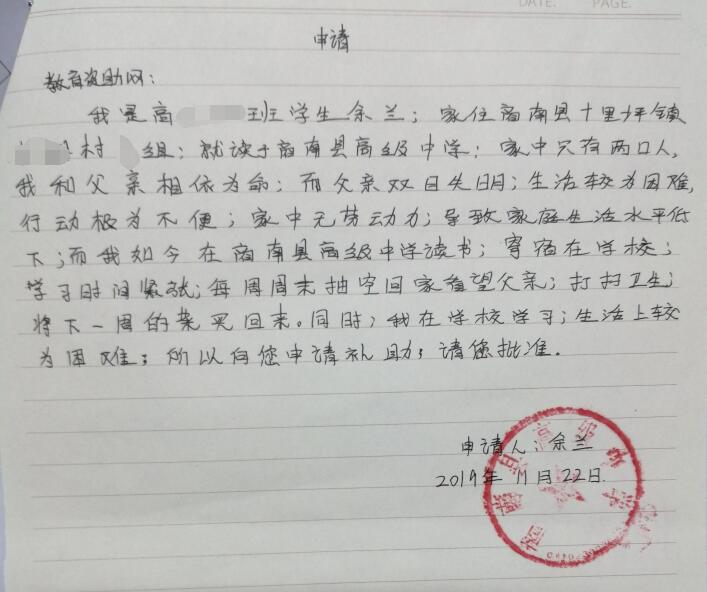 DATE. PAGE.
申请
教育资助网：
我是高 班学生余兰；家住商南县十里坪镇
村 组；就读于商南县高级中学；家中只有两口人，
我和父亲相依为命；而父亲双目失明；生活较为困难，
行动极为不便；家中无劳动力；导致家庭生活水平低
下；而我如今在商南县高级中学读书；寄宿在学校；
学习时间紧张；每周周末抽空回家看望父亲；打扫卫生；
将下一周的菜买回来。同时；我在学校学习；生活上较
为困难；所以向您申请补助；请您批准.
申请人：余兰
2019年11月22日.
商南县高级中学